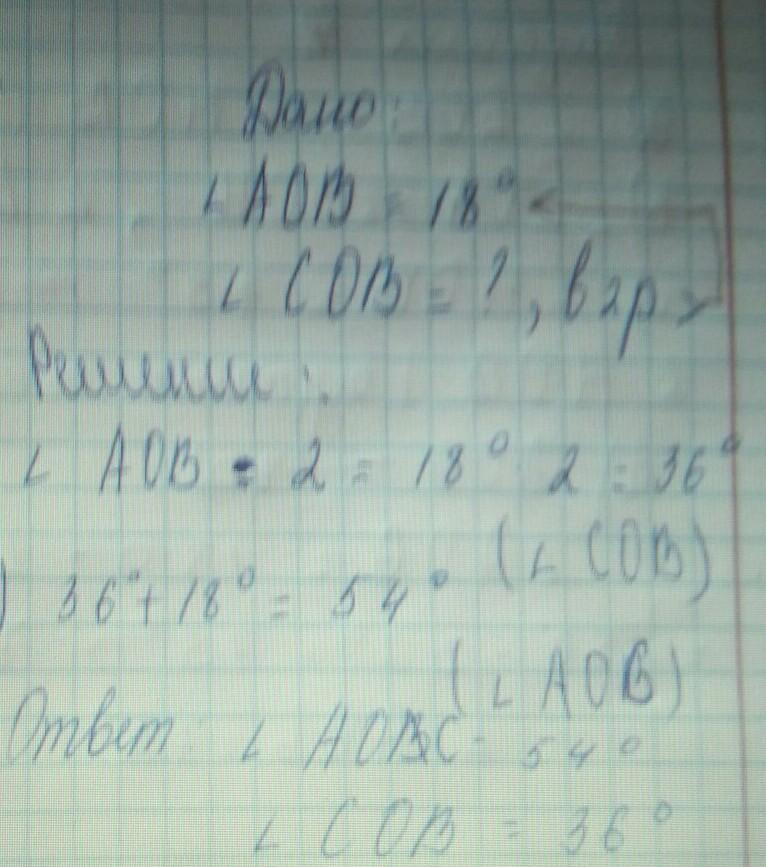 Дано:
∟AOB = 18°
∟ COB = ?, в 2р >
Решение:
∟ AOB · 2 = 18° · 2 = 36°
(∟ COB)
) 36° + 18° = 54°
(∟ AOB)
Ответ: ∟ AOBC = 54°
∟ COB = 36°